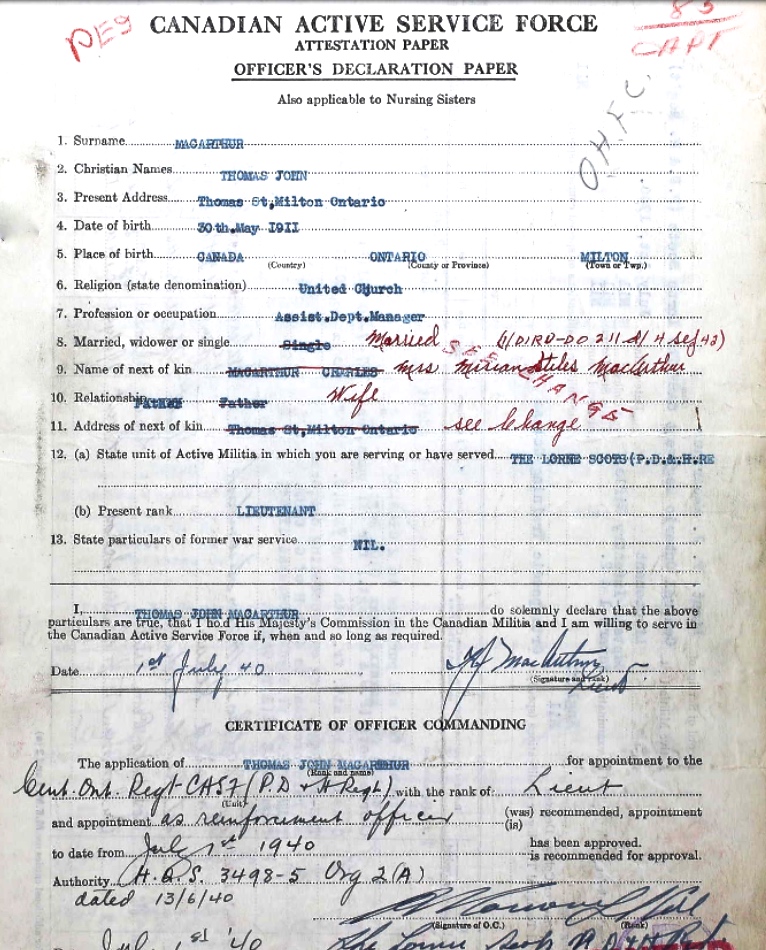 PEg
83
CAPT
CANADIAN ACTIVE SERVICE FORCE
ATTESTATION PAPER
OFFICER'S DECLARATION PAPER
Also applicable to Nursing Sisters
O.H.F.C.
1. Surname MACARTHUR
2. Christian Names THOMAS JOHN
3. Present Address Thomas St,Milton Ontario
4. Date of birth 30th.May I9II
5. Place of birth CANADA ONTARIO MILTON
(Country) (County or Province) (Town or Twp.)
6. Religion (state denomination) United Church
7. Profession or occupation Assist.Dept.Manager
8. Married, widower or single Single Married
9. Name of next of kin MACARTHUR CHARLES Mrs Stiles MacArthur
SEE CHANGE
10. Relationship Father Wife
11. Address of next of kin Thomas St,Milton Ontario see change
12. (a) State unit of Active Militia in which you are serving or have served THE LORNE SCOTS(P.D.&.H.RE
(b) Present rank LIEUTENANT
13. State particulars of former war service NIL.
I, THOMAS JOHN MACARTHUR do solemnly declare that the above
particulars are true, that I hold His Majesty's Commission in the Canadian Militia and I am willing to serve in
the Canadian Active Service Force if, when and so long as required.
Date 1st July 40 TJ MacArthur
(Signature and rank) Lieut
CERTIFICATE OF OFFICER COMMANDING
The application of THOMAS JOHN MACARTHUR for appointment to the
(Rank and name)
Cent. Ont. Regt CASF (P.D & H Regt) with the rank of Lieut
(Unit)
and appointment as reinforcement officer (was) recommended, appointment
(is)
to date from July 1st 1940 has been approved.
is recommended for approval.
Authority H.Q.S. 3498-5 Org 2(A)
dated 13/6/40
(Signature of O.C.) (Rank)
July 1st '40 The Lorne Scots